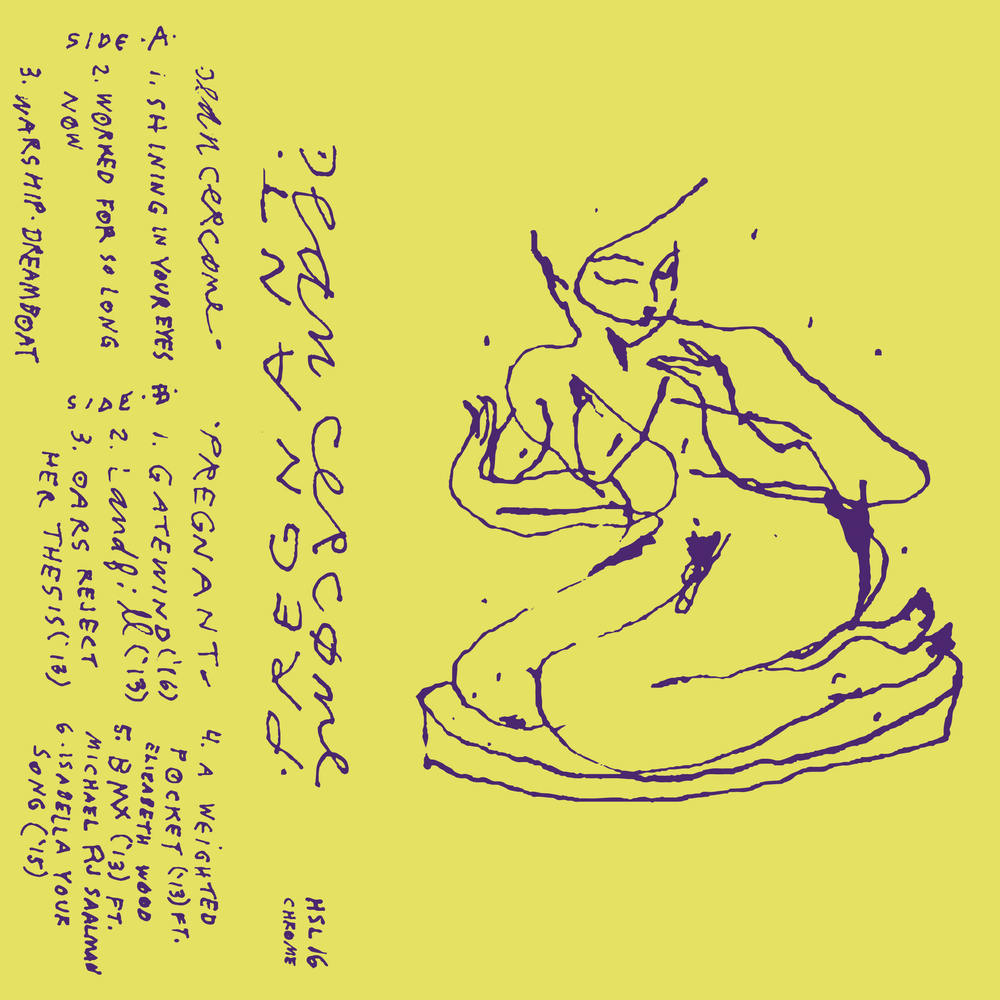 Dean Cercone
.TNANGERP.
Dean Cercone-
SIDE .A.
1. SHINING IN YOUR EYES
2. WORKED FOR SO LONG
NOW
3. WARSHIP. DREAMBOAT
.PREGNANT-
SIDE .B.
1. GATEWIND ('16)
2. Landfill ('13)
3. OARS REJECT
HER THESIS ('13)
4. A WEIGHTED
POCKET ('13) FT.
ELIZABETH WOOD
5. BMX ('13) FT.
MICHAEL RJ SAALMAN
6. ISABELLA YOUR
SONG ('15)
HSL 16
CHROME